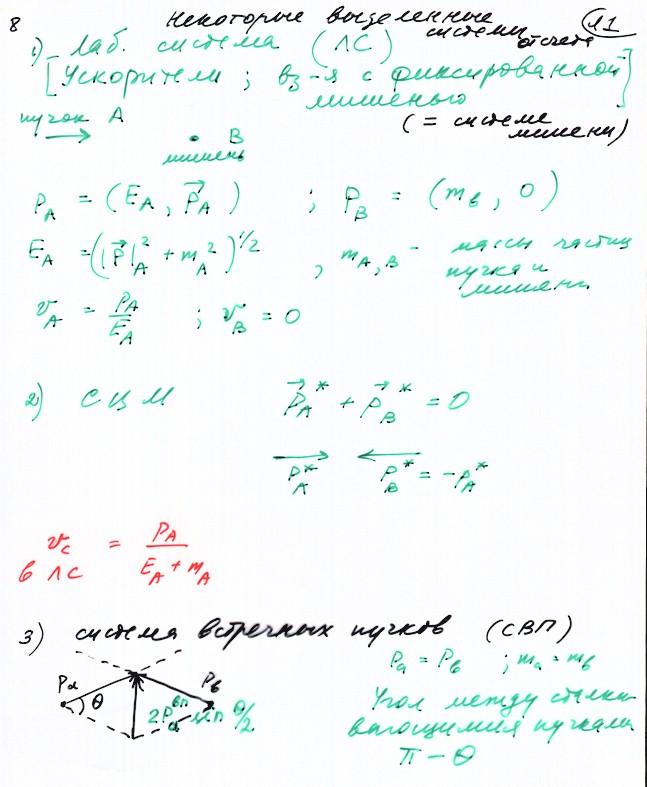 8
Некоторые выделенные
системы отсчета
л1
1) Лаб. система (ЛС)
[Ускорители; вз-я с фиксированной
мишенью]
(= системе
мишени)
пучок A
B
мишень
p_A = (E_A, \vec{p}_A) ; p_B = (m_b, 0)
E_A = (|\vec{p}|_A^2 + m_A^2)^{1/2} , m_{A,B} - массы частиц
пучка и
мишени
v_A = p_A / E_A ; v_B = 0
2) СЦМ \vec{p}_A^* + \vec{p}_B^* = 0
p_A^* p_B^* = -p_A^*
v_c = p_A / (E_A + m_A)
в ЛС
3) система встречных пучков (СВП)
p_a = p_b ; m_a = m_b
p_a θ p_b
2p_a^{вп} sin θ/2
Угол между сталки
вающимися пучками
π - θ